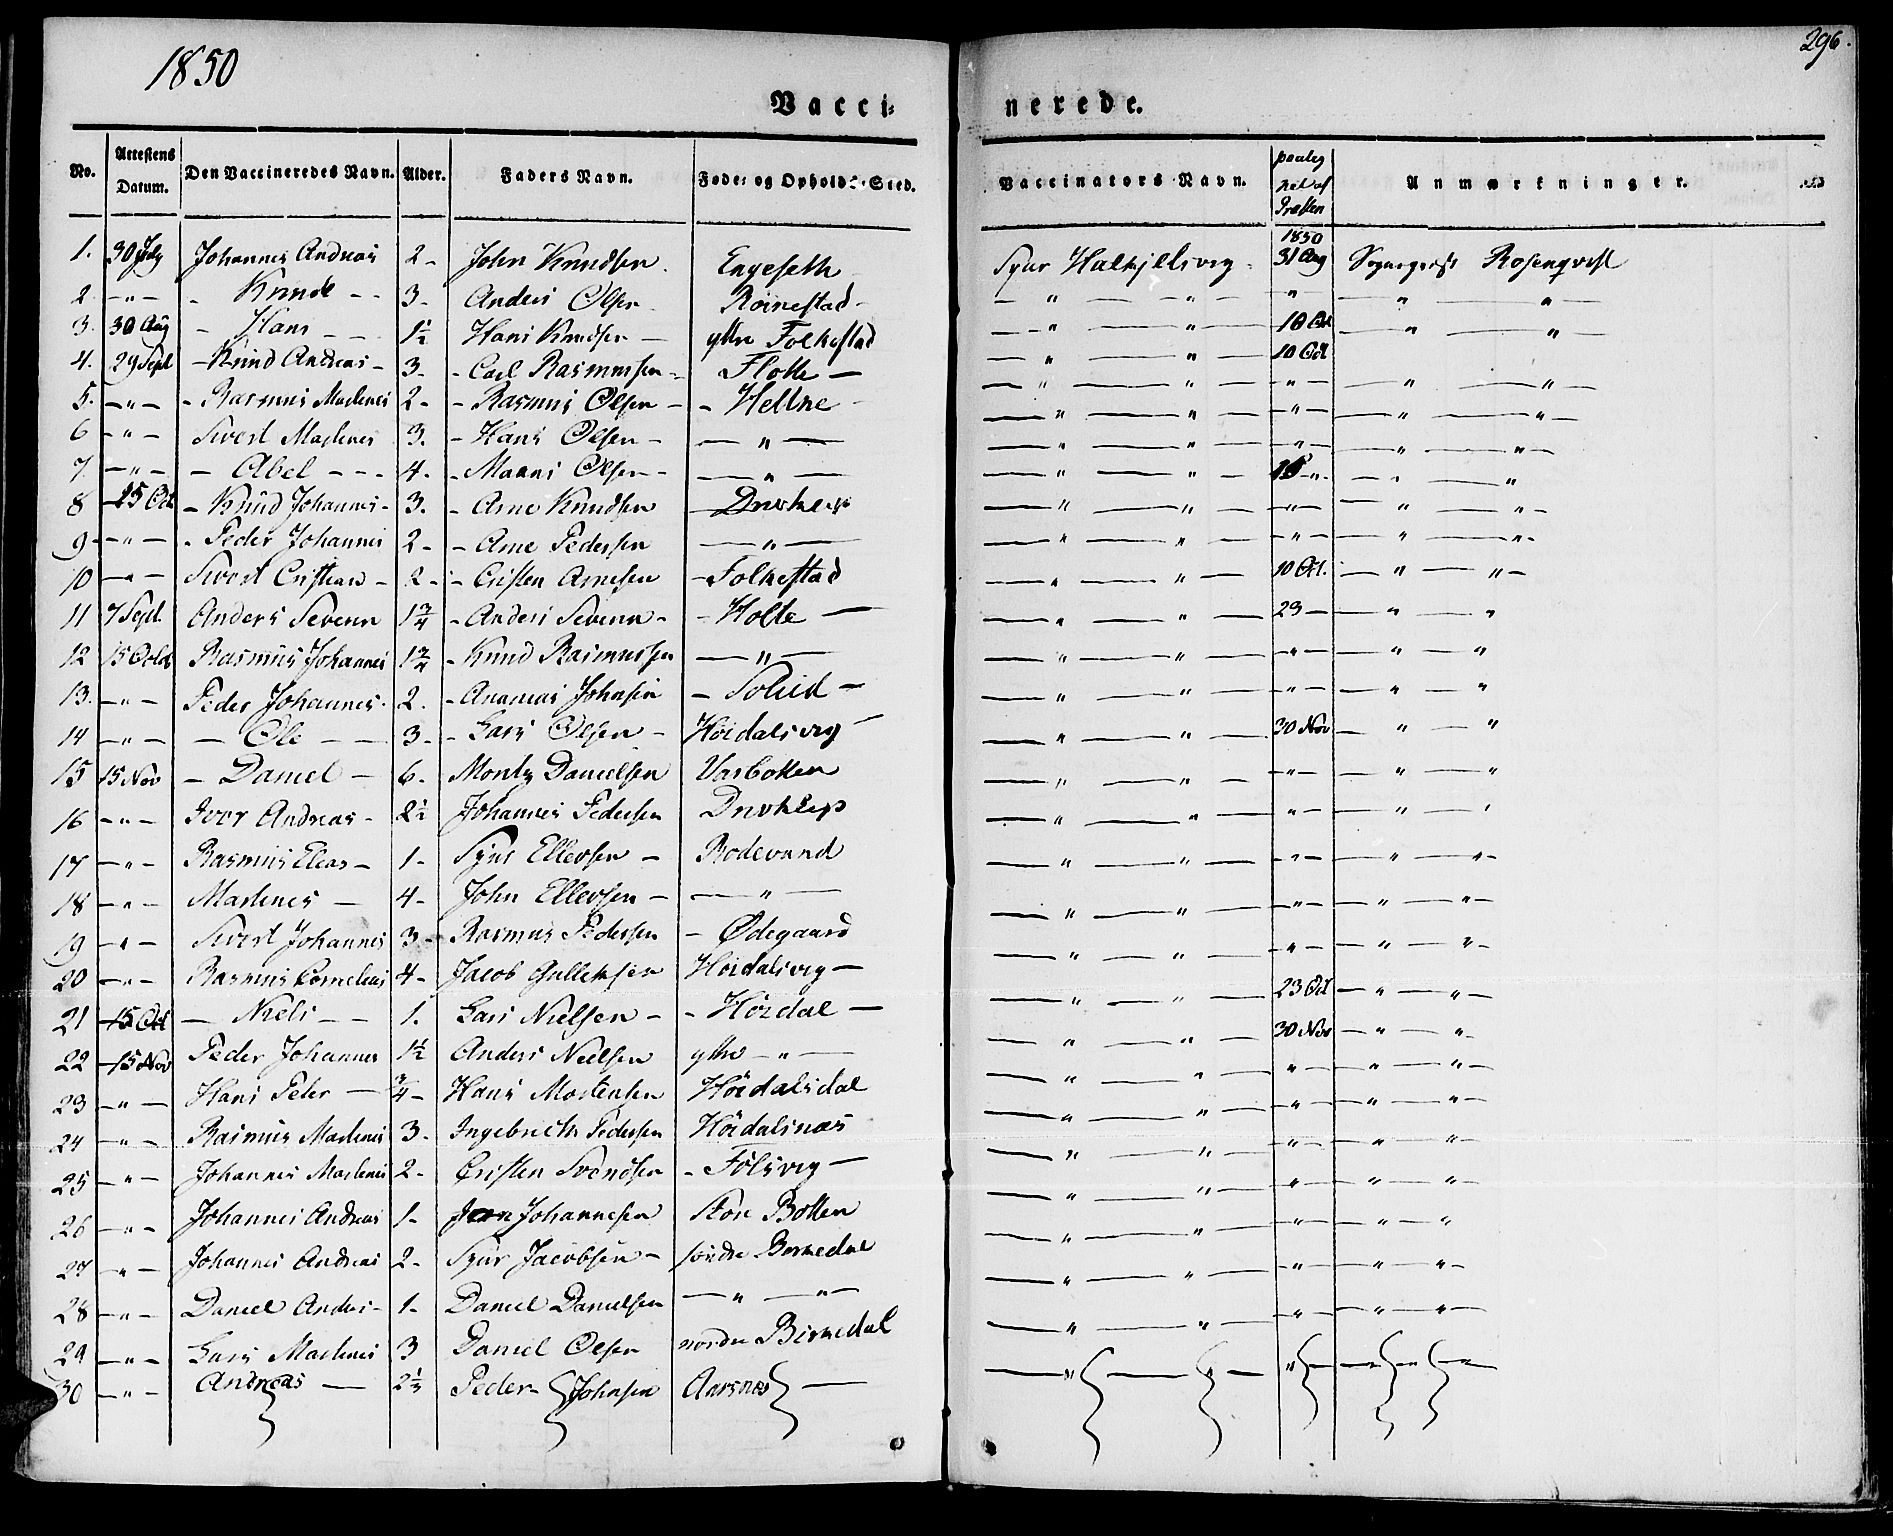 1850
296.
Vacci-
nerede.
No. Attestens Datum. Den Vaccineredes Navn. Alder. Faders Navn. Føde- og Opholds-Sted. Vaccinators Navn. Anmærkninger.
1. 30 July Johannes Andreas 2 - John Knudsen. Engeseth Sjur Halkjelsvig - 1850 31 Aug Sogneprest Rosenqvist
2 - " - - Knude - - 3 - Anders Olsen Roinestad - - " - " - " - " - " -
3. 30 Aug - Hans - 1½ Hans Knudsen - yttre Folkestad - " - " - 10 Oct - " - " -
4. 29 Sept - Knud Andreas - 3 - - Carl Rasmussen - Flotte - - " - " - 10 Oct
5. - " - - Rasmus Martenes 2 - - Rasmus Olsen - - Heltne - - " - " - - " - - " - " -
6 - " - Sivert Martenes 3. - Hans Olsen - - " - - " - " - - " - - " - " -
7. - " - - Abel - - - 4. - Maans Olsen - - " - - " - " - - " - - " - " -
8 15 Oct - Knud Johannes - 3. - Arne Knudsen - " - " - - " - " -
9 - - " - - Peder Johannes 2 - - Arne Pedersen - " - - " - " - - " - - " - " -
10 - " - Sivert Cristian - 2 - - Cristen Arnesen - Folkestad - " - " - - " - - " - " -
11 7 Sept. Anders Severin 1¾ - Anders Severin - - Holte - - " - " - 10 Oct. - " - " -
12 15 Octob Rasmus Johannes 1¾ - Knud Rasmussen - " - - " - " - 23 - - " - "
13. - " - Peder Johannes - 2. - Ananias Johnsen - - " - " - - " - - " - "
14 - " - - Ole - - 3 - - Lars Olsen - Höidalsvig - - " - " - - " - - " - "
15 15 Nov - Daniel - 6 - Danielsen Vasbotten - " - " - 30 Nov - " - "
16 - " - Iver Andreas - 2½ Johannes Pedersen - " - " - - " - - " - "
17 - " - Rasmus Elias - 1 - Sjur Ellevsen - Rodevand - " - " - - " - - " - "
18 - " - Martenes - 4 - John Ellevsen - - " - - " - " - - " - - " - " -
19 - " - Sivert Johannes 3 - Rasmus Pedersen - Ødegaard - " - " - - " - - " - " -
20 - " - Rasmus Cornelius 4 - Jacob Gulleksen Höidalsvig - - " - " - - " - - " - " -
21 15 Oct - Niels - - 1. Lars Nielsen - - Höidal - - " - " - 23 Oct - " - " -
22 15 Nov Peder Johannes 1½ Anders Nielsen yttre - " - - " - " - 30 Nov - " - " -
23 - " - Hans Peter - ¾ - Hans Mortensen Höidalsdal - " - " - - " - - " - " -
24 - " - Rasmus Martenes 3 - Ingebrieth Pedersen Höidalsnæs - " - " - - " - - " - " -
25 - " - Johannes Martenes 2 - Cristen Svendsen - Fölsvig - - " - " - - " - - " - "
26 - " - Johannes Andreas 1 - Johannesen Store Botten - " - " - - " - - " - "
27 - " - Johannes Andreas 2 - Sjur Jacobsen - söndre Birkedal - " - " - - " - - " - "
28 - " - Daniel Anders - 1 - Daniel Danielsen - " - " - - " - " - - " - - " - " -
29 - " - Lars Martenes 3 Daniel Olsen nordre Birkedal - " - " - - " - - " - " -
30 - " - Andreas - 2⅓ Peder - Johnsen Aarsnes - - " - " - - " - - " - " -